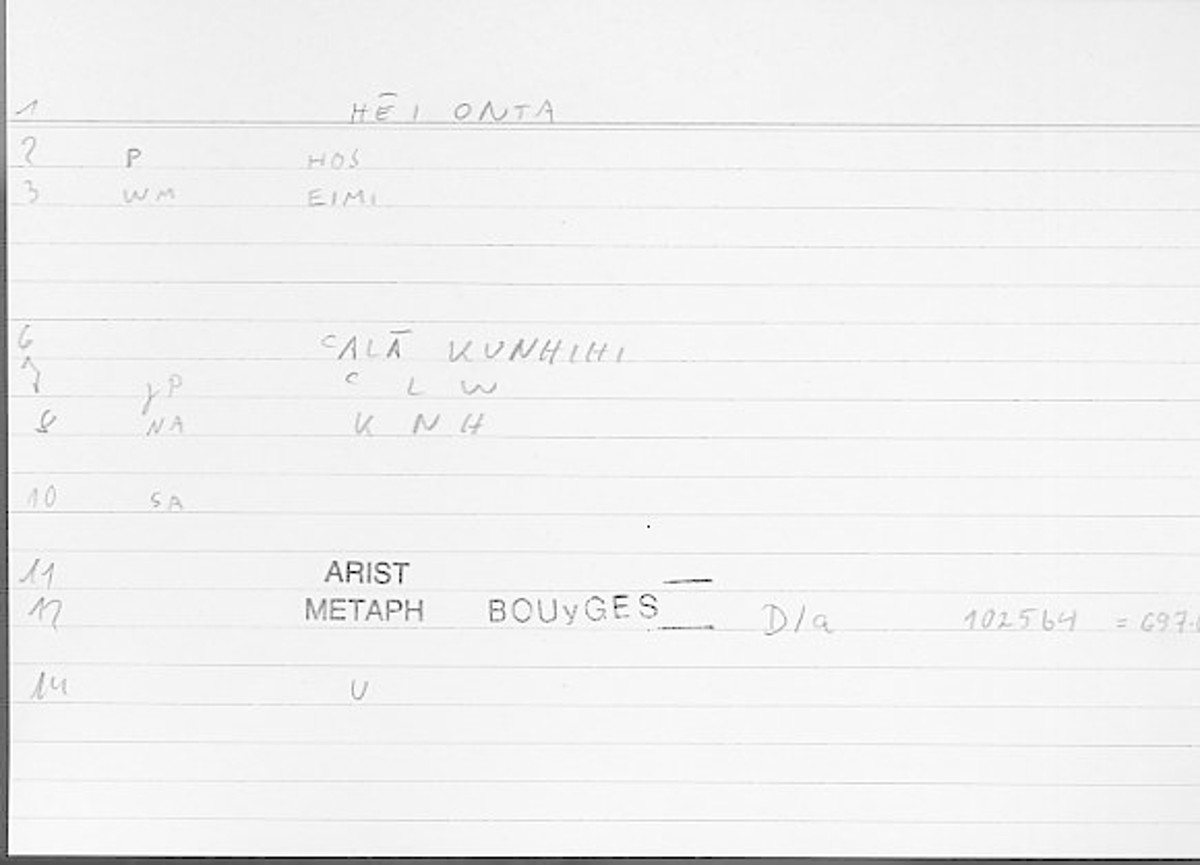 1 HĒI ONTA
2 P HOS
3 WM EIMI
6 ᶜALĀ KUNHIHI
7 γP ᶜ L W
8 NA K N H
10 SA
11 ARIST
12 METAPH BOUyGES D/a 102564 = 697.
14 U